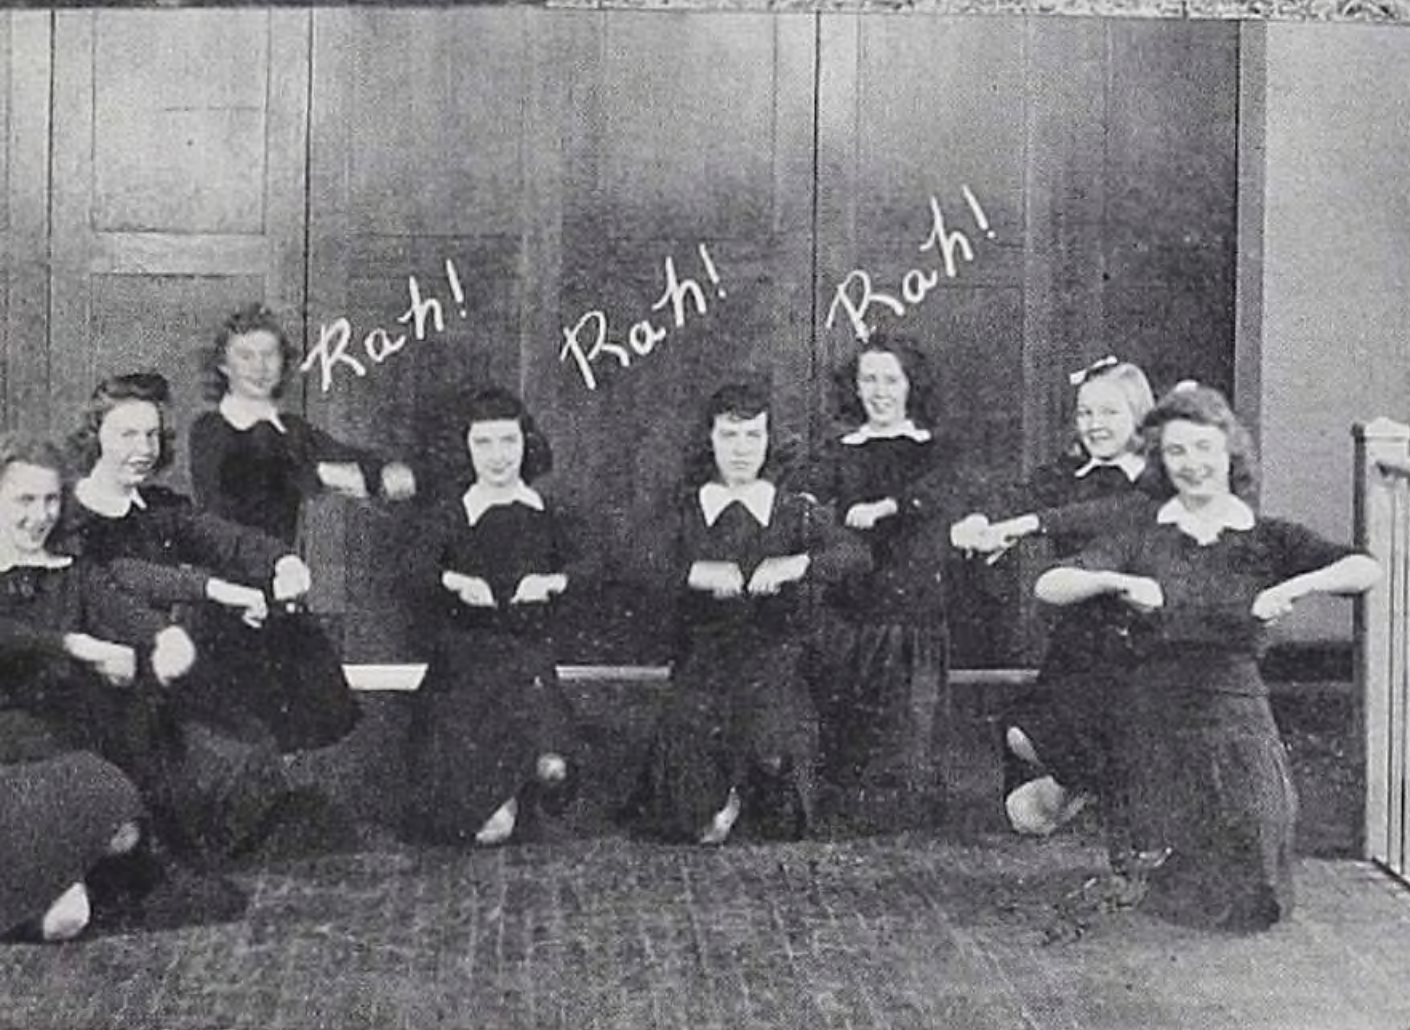 Rah! Rah! Rah!